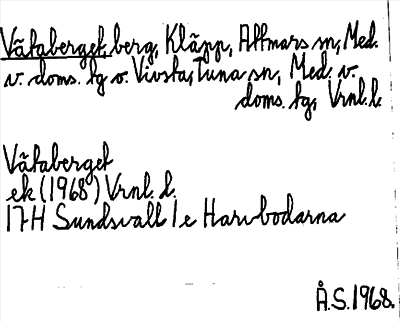 Vätaberget, berg, Kläpp, Attmars sn, Med.
v. doms. tg o. Vivsta, Tuna sn, Med. v.
doms. tg, Vrnl. l.
Vätaberget
ek (1968) Vrnl. l.
17H Sundsvall 1e Harvbodarna
Å.S. 1968.